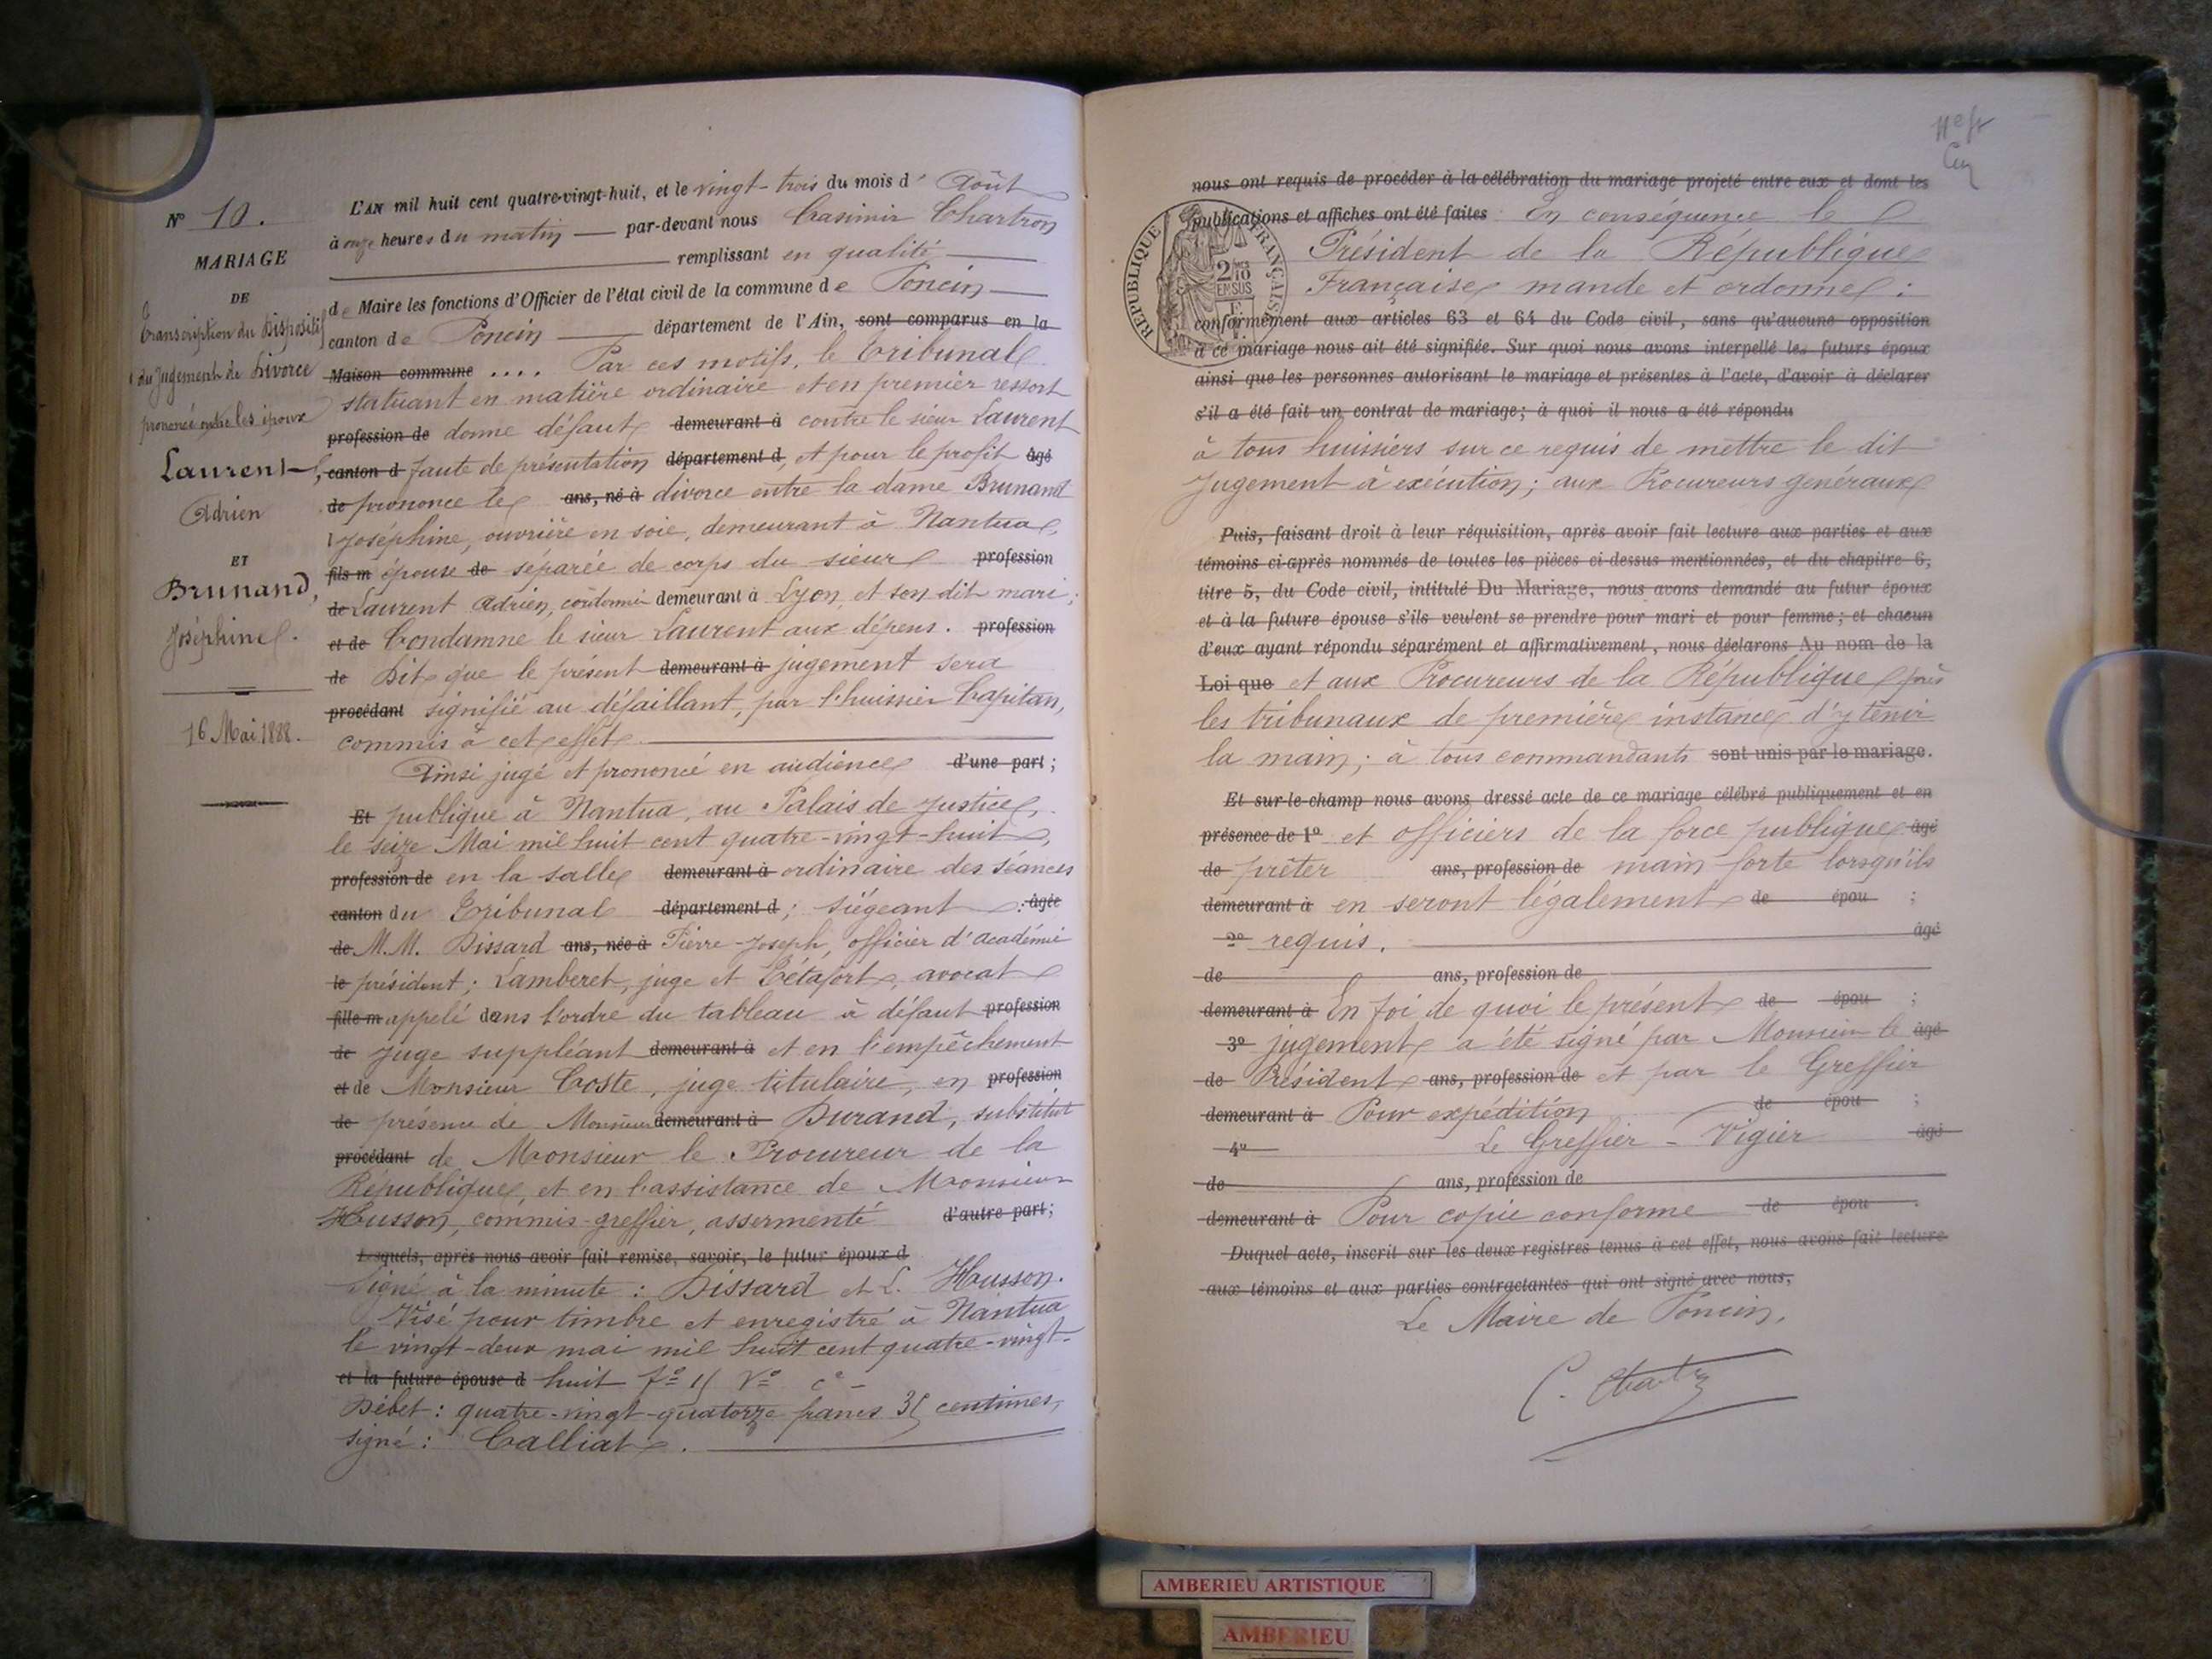 N° 10.
MARIAGE
DE
Transcription du Dispositif
du Jugement de Divorce
prononcé entre les époux
Laurent
Adrien
ET
Brunand,
Joséphine.
16 Mai 1888.
L'AN mil huit cent quatre-vingt-huit, et le vingt-trois du mois d' Août
à onze heures du matin — par-devant nous Casimir Chartron
remplissant en qualité
de Maire les fonctions d'Officier de l'état civil de la commune de Poncin
canton de Poncin — département de l'Ain, sont comparus en la
Maison commune .... Par ces motifs, le Tribunal
statuant en matière ordinaire et en premier ressort
profession de donne défaut demeurant à contre le sieur Laurent
canton d faute de présentation département d, et pour le profit âgé
de prononce le ans, né à divorce entre la dame Brunand
Joséphine, ouvrière en soie, demeurant à Nantua,
fils m épouse de séparée de corps du sieur profession
de Laurent Adrien, cordonnier demeurant à Lyon, et son dit mari;
et de Condamne le sieur Laurent aux dépens. profession
de Dit que le présent demeurant à jugement sera
procédant signifié au défaillant, par l'huissier Capitan,
commis à cet effet.
Ainsi jugé et prononcé en audience d'une part;
Et publique à Nantua, au Palais de Justice,
le seize Mai mil huit cent quatre-vingt-huit,
profession de en la salle demeurant à ordinaire des séances
canton du Tribunal département d; siégeant : âgée
de M.M. Dissard ans, née à Pierre-Joseph, officier d'académie
le président; Lamberet, juge et Bétafort, avocat
fille m appelé dans l'ordre du tableau à défaut profession
de Juge suppléant demeurant à et en l'empêchement
et de Monsieur Coste, juge titulaire, en profession
de présence de Monsieur demeurant à Durand, substitut
procédant de Monsieur le Procureur de la
République, et en l'assistance de Monsieur
Husson, commis-greffier, assermenté d'autre part;
Lesquels, après nous avoir fait remise, savoir, le futur époux d
Signé à la minute : Dissard et L. Husson.
Visé pour timbre et enregistré à Nantua
le vingt-deux mai mil huit cent quatre-vingt-
et la future épouse d huit f° V° c°
Débet : quatre-vingt-quatorze francs 35 centimes,
signé : Calliat.
nous ont requis de procéder à la célébration du mariage projeté entre eux et dont les
publications et affiches ont été faites En conséquence le
Président de la République
Française mande et ordonne :
RÉPUBLIQUE FRANÇAISE
2/10 EN SUS
conformément aux articles 63 et 64 du Code civil, sans qu'aucune opposition
à ce mariage nous ait été signifiée. Sur quoi nous avons interpellé les futurs époux
ainsi que les personnes autorisant le mariage et présentes à l'acte, d'avoir à déclarer
s'il a été fait un contrat de mariage; à quoi il nous a été répondu
à tous huissiers sur ce requis de mettre le dit
Jugement à exécution; aux Procureurs généraux
Puis, faisant droit à leur réquisition, après avoir fait lecture aux parties et aux
témoins ci-après nommés de toutes les pièces ci-dessus mentionnées, et du chapitre 6,
titre 5, du Code civil, intitulé Du Mariage, nous avons demandé au futur époux
et à la future épouse s'ils veulent se prendre pour mari et pour femme; et chacun
d'eux ayant répondu séparément et affirmativement, nous déclarons Au nom de la
Loi que et aux Procureurs de la République près
les tribunaux de première instance d'y tenir
la main; à tous commandants sont unis par le mariage.
Et sur-le-champ nous avons dressé acte de ce mariage célébré publiquement et en
présence de 1° et officiers de la force publique âgé
de prêter ans, profession de main forte lorsqu'ils
demeurant à en seront légalement de épou ;
2° requis. âgé
de ans, profession de
demeurant à En foi de quoi le présent de épou ;
3° jugement a été signé par Monsieur le âgé
de Président ans, profession de et par le Greffier
demeurant à Pour expédition de épou ;
4° Le Greffier - Vigier âgé
de ans, profession de
demeurant à Pour copie conforme de épou .
Duquel acte, inscrit sur les deux registres tenus à cet effet, nous avons fait lecture
aux témoins et aux parties contractantes qui ont signé avec nous,
Le Maire de Poncin,
AMBERIEU ARTISTIQUE
AMBERIEU